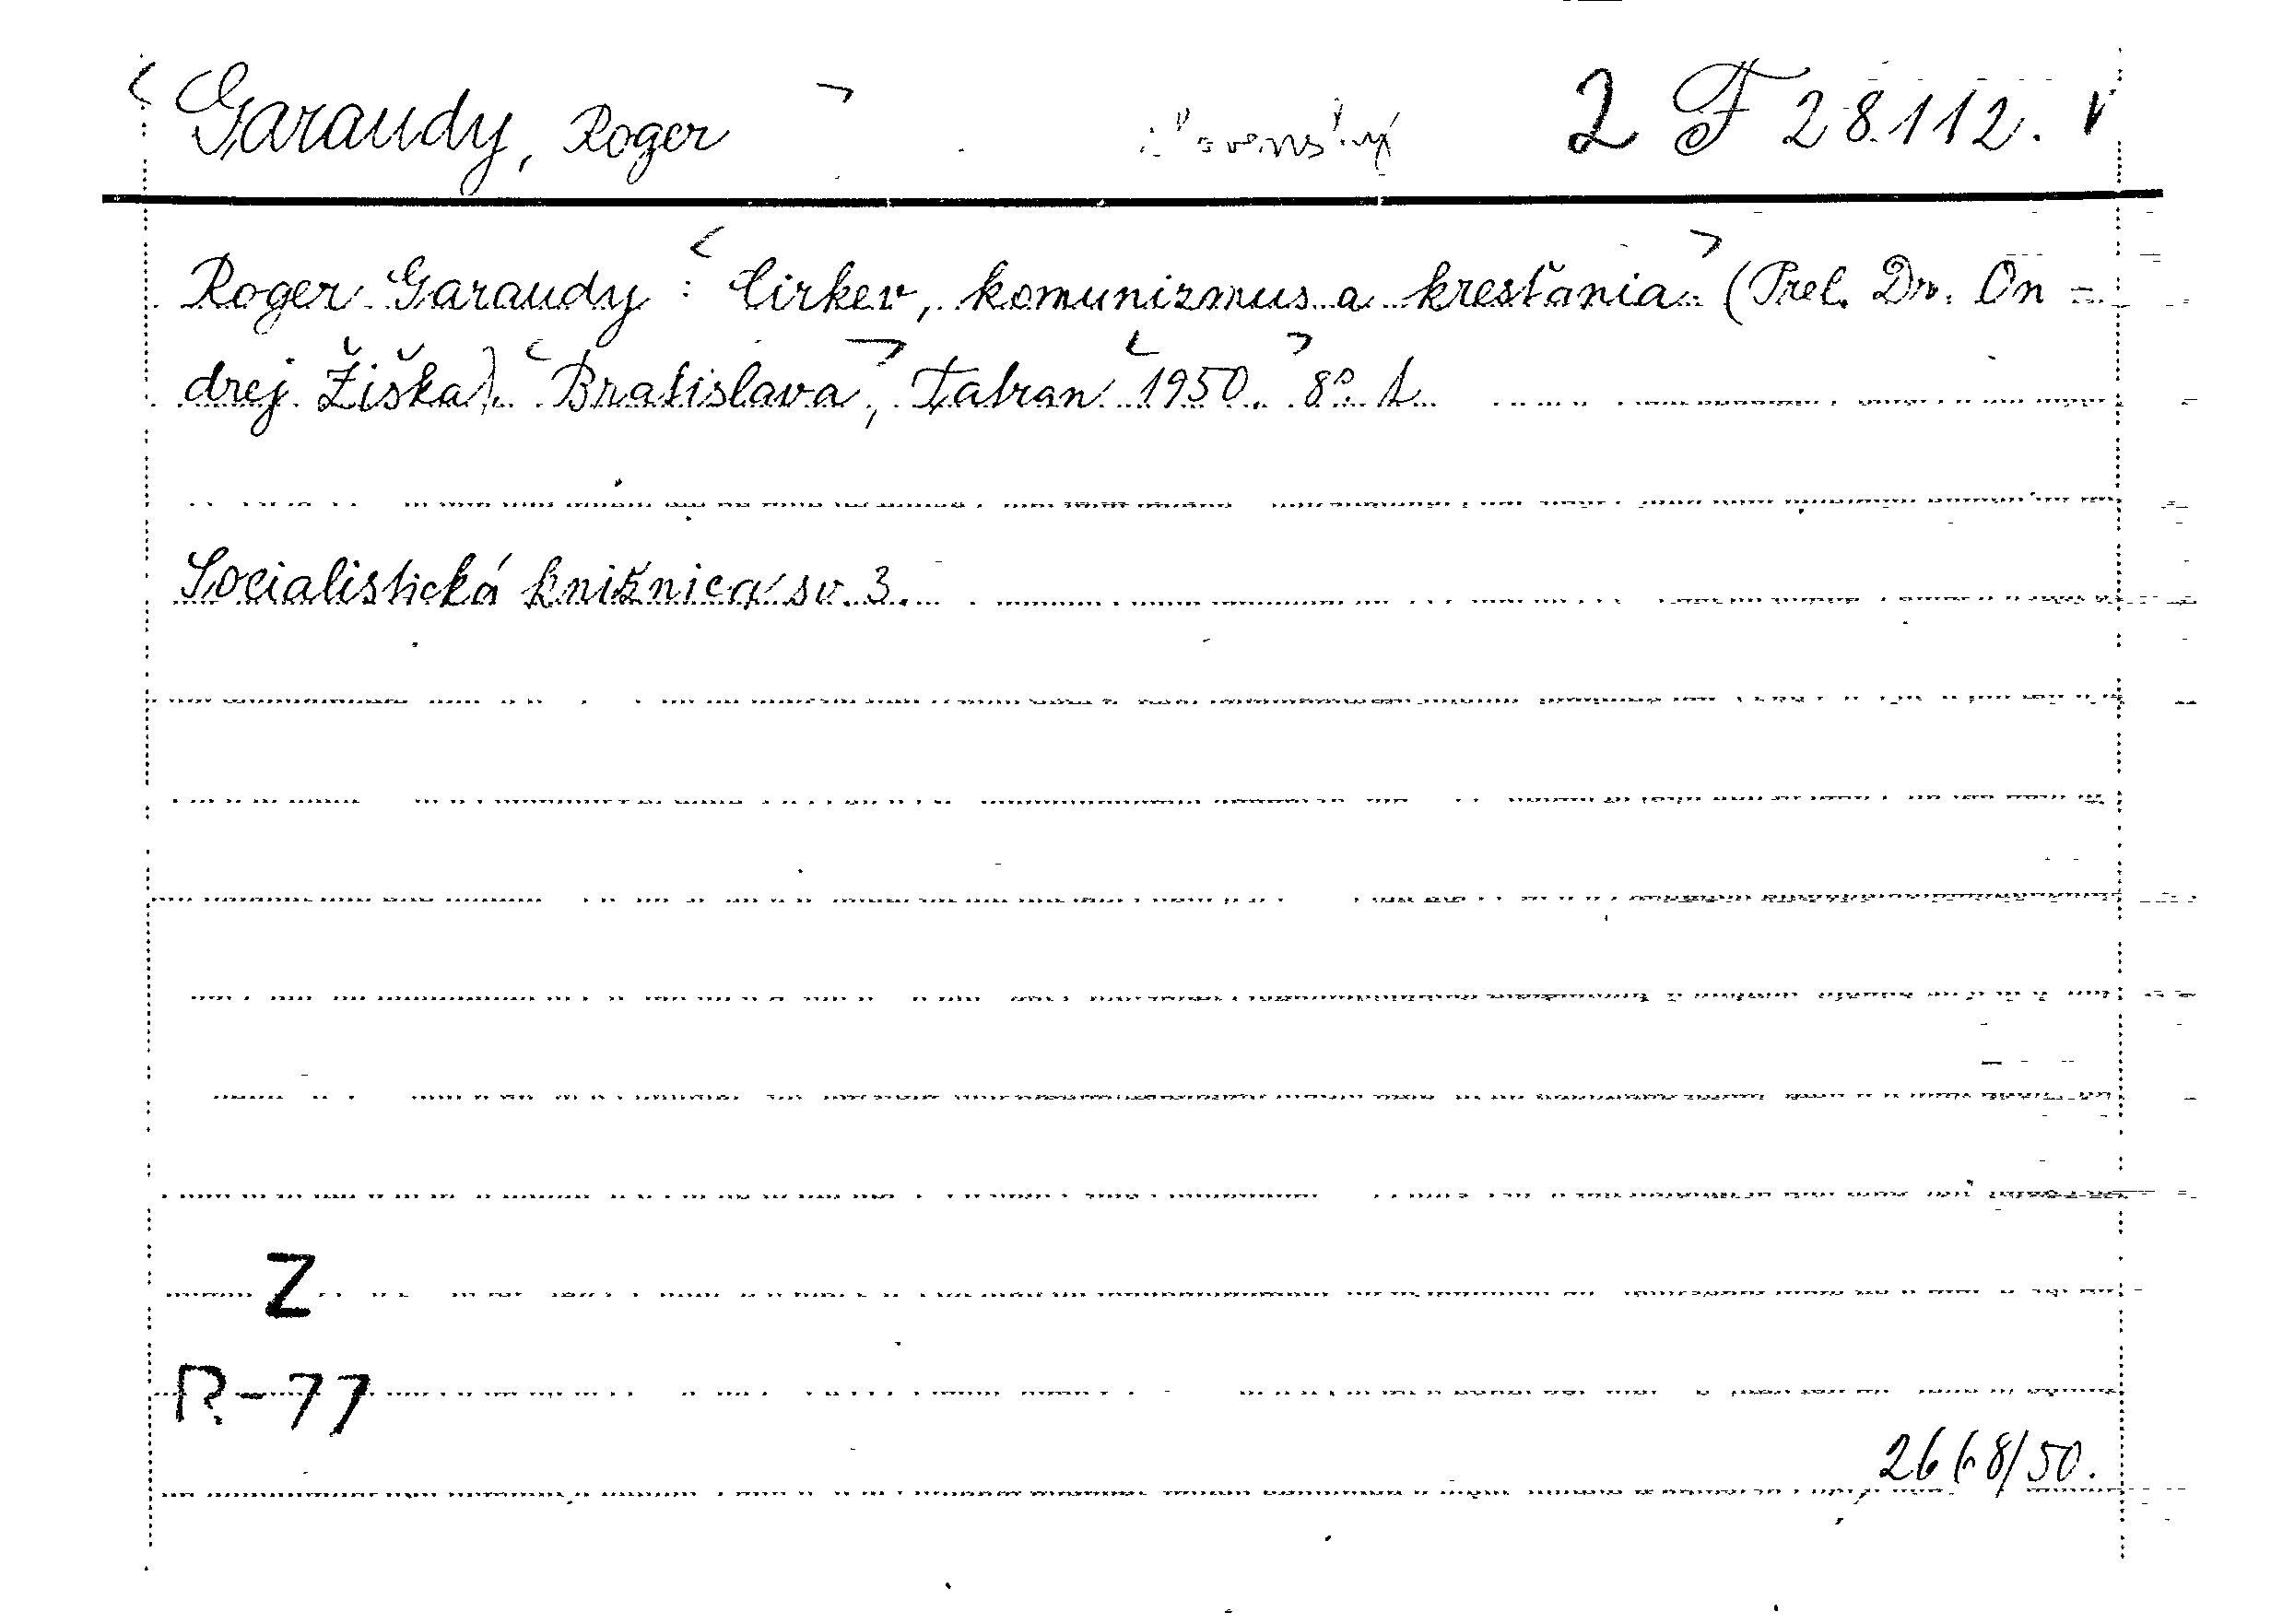 Garaudy, Roger 2 F 28.112.
Roger Garaudy: Cirkev, komunizmus a kresťania. (Prel. Dr. On-
drej Žiška). Bratislava, Tatran 1950. 8°.
Socialistická knižnica sv. 3.
Z
R-77
2668/50.